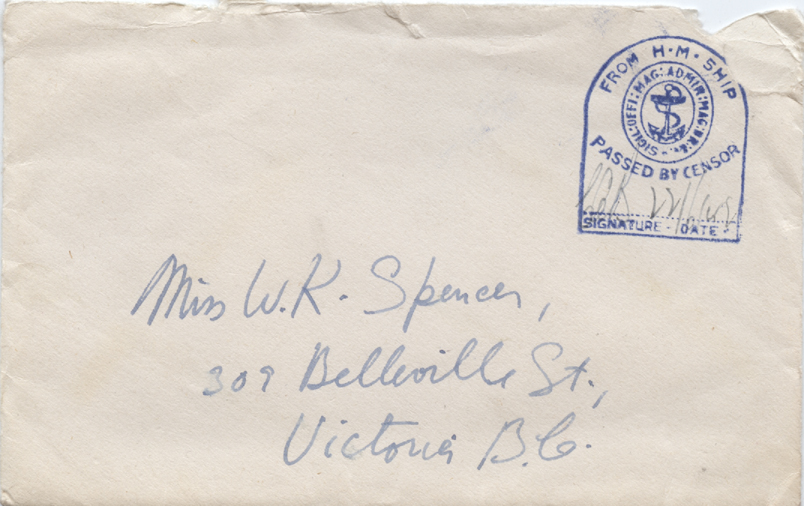 FROM H·M·SHIP
SIGIL:OFFI:MAG:ADMIR:MAG:BR:
PASSED BY CENSOR
SIGNATURE - DATE -
Miss W.K. Spencer,
309 Belleville St.,
Victoria B.C.